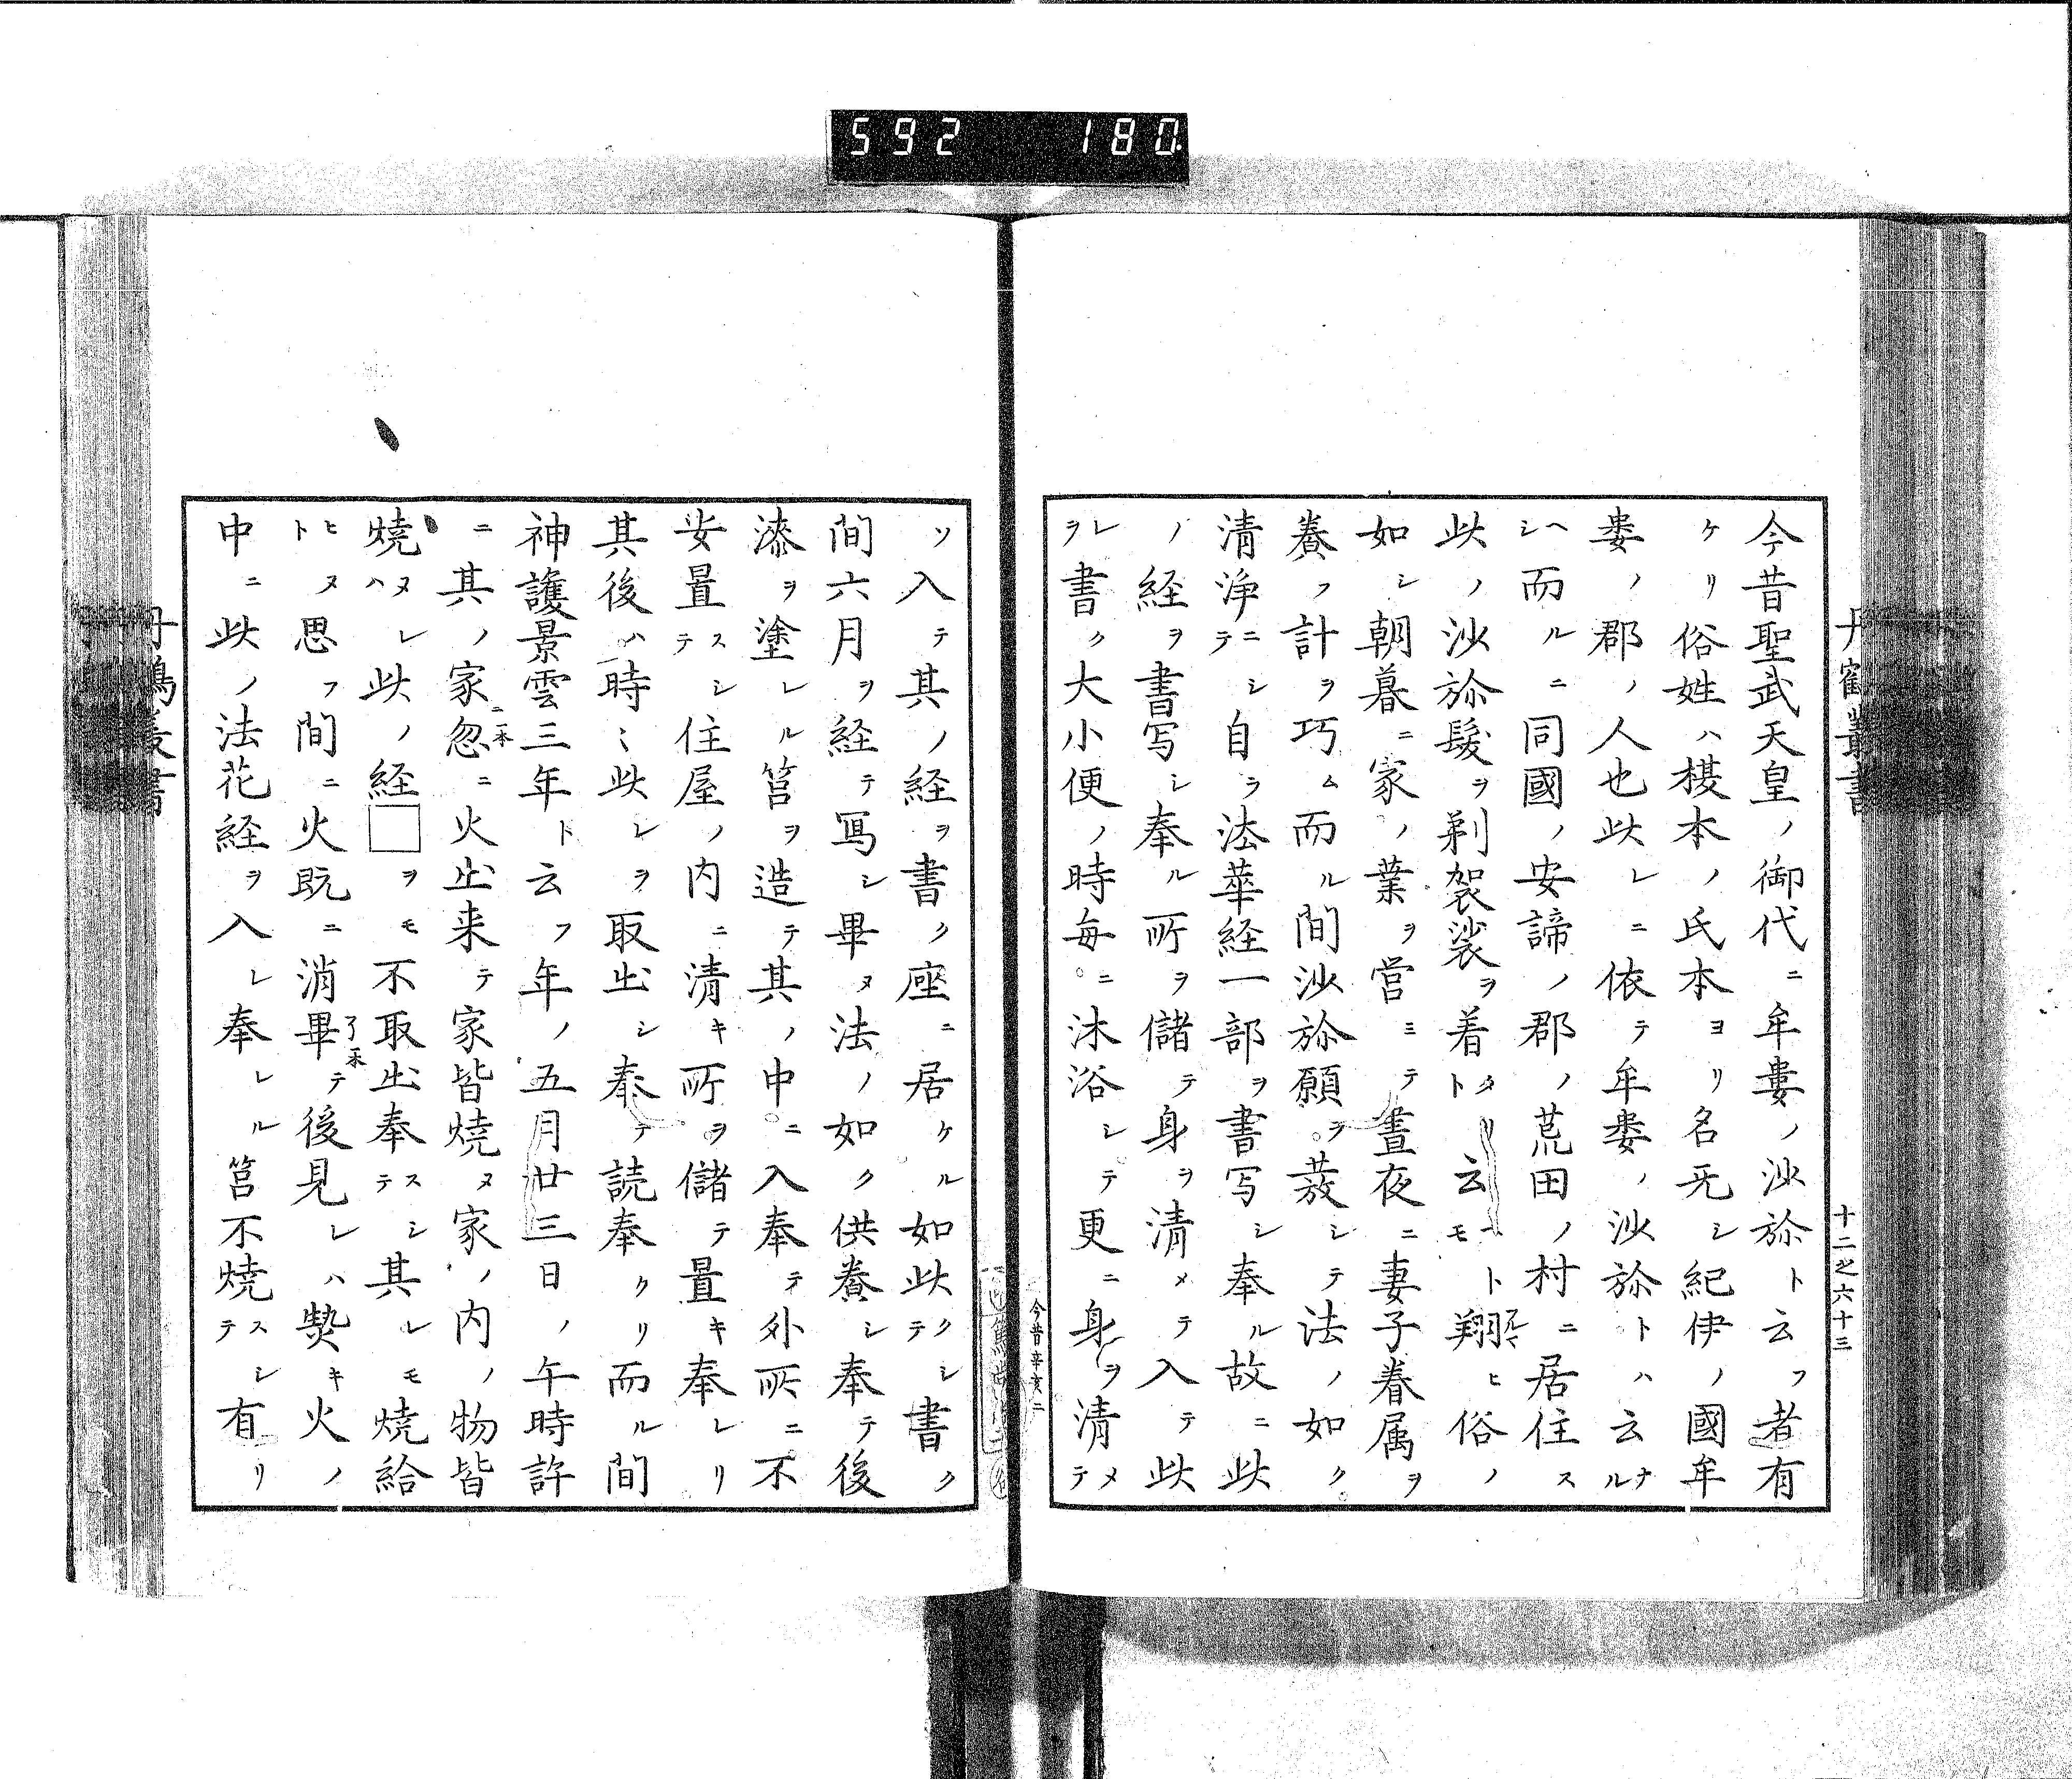 592 180.
丹鶴叢書
十二之六十三
今昔聖武天皇ノ御代ニ牟婁ノ沙弥ト云フ者有
ケリ俗姓ハ榎本ノ氏本ヨリ名无シ紀伊ノ國牟
婁ノ郡ノ人也此レニ依テ牟婁ノ沙弥トハ云ナル
ヘシ而ルニ同國ノ安諦ノ郡ノ荒田ノ村ニ居住ス
此ノ沙弥髮ヲ剃袈裟ヲ着タリト云ヘトモ翔ヒ俗ノ
如シ朝暮ニ家ノ業ヲ営ミテ晝夜ニ妻子眷属ヲ
養フ計ヲ巧ム而ル間沙弥願ヲ蕟シテ法ノ如ク
清浄ニシテ自ラ法華経一部ヲ書写シ奉ル故ニ此
ノ経ヲ書写シ奉ル所ヲ儲テ身ヲ清メテ入テ此
レヲ書ク大小便ノ時毎ニ沐浴シテ更ニ身ヲ清メテ
今昔辛亥二
ソ入テ其ノ経ヲ書ク座ニ居ケル如此クシテ書ク
間六月ヲ経テ冩シ畢ヌ法ノ如ク供養シ奉テ後
漆ヲ塗レル筥ヲ造テ其ノ中ニ入奉テ外所ニ不
安置スシテ住屋ノ内ニ清キ所ヲ儲テ置キ奉レリ
其後ハ時〻此レヲ取出シ奉テ読奉クリ而ル間
神護景雲三年ト云フ年ノ五月廿三日ノ午時許
ニ其ノ家忽ニ火出来テ家皆焼ヌ家ノ内ノ物皆
焼ヌレハ此ノ経□ヲモ不取出奉スシテ其レモ焼給
ヒヌト思フ間ニ火既ニ消畢テ後見レハ㷫キ火ノ
中ニ此ノ法花経ヲ入レ奉レル筥不焼スシテ有リ
丹鶴叢書